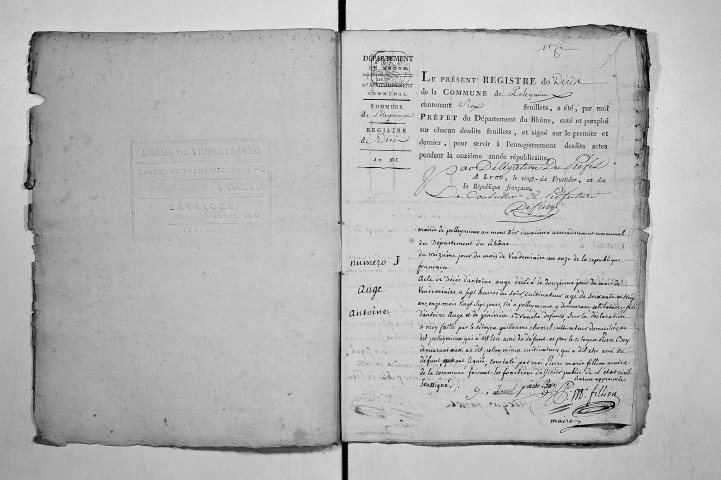 DÉPARTEMENT
DU RHÔNE.
ARRONDISSEMENT
COMMUNAL.
COMMUNE
de Poleymieux
REGISTRE
de Décès
AN XI.
LE PRÉSENT REGISTRE de Décès
de la COMMUNE de Poleymieux
contenant six feuillets, a été, par moi
PRÉFET du Département du Rhône, coté et paraphé
sur chacun desdits feuillets, et signé sur le premier et
dernier, pour servir à l'enregistrement desdits actes
pendant la onzième année républicaine.
Par Délégation Du Préfet
A LYON, le vingt-six Fructidor, an dix
de la République française,
Le Conseiller de Préfecture
mairie de polleymieux au mont d'or deuxieme arrondissement communal
du Departement du Rhône
du treizieme jour du mois de Vendemiaire an onze de la republique
francaise
numero 1
Auge
Antoine
Acte de Décès d'antoine auge décédé le douzieme jour du mois de
Vendemiaire a sept heures du soir, cultivateur agé de soixante et
ans, onze mois vingt sept jours, né a polleymieux y demeurant, fils
d'antoine Auge et de défunts, Sur la déclaration
a moy faitte par le citoyen guillaume chomel cultivateur domicilié au
dit polleymieux qui a dit être ami du défunt et par le citoyen Pierre Bay
demeurant aussi au dit polleymieux cultivateur qui a dit etre ami du
défunt et ont signés, constaté par moi Pierre marie fillion maire
de la commune faisant les fonctions d'officier public de l'état civil
Soussigné.
g. chomel pierre Bay
P. M. fillion
maire